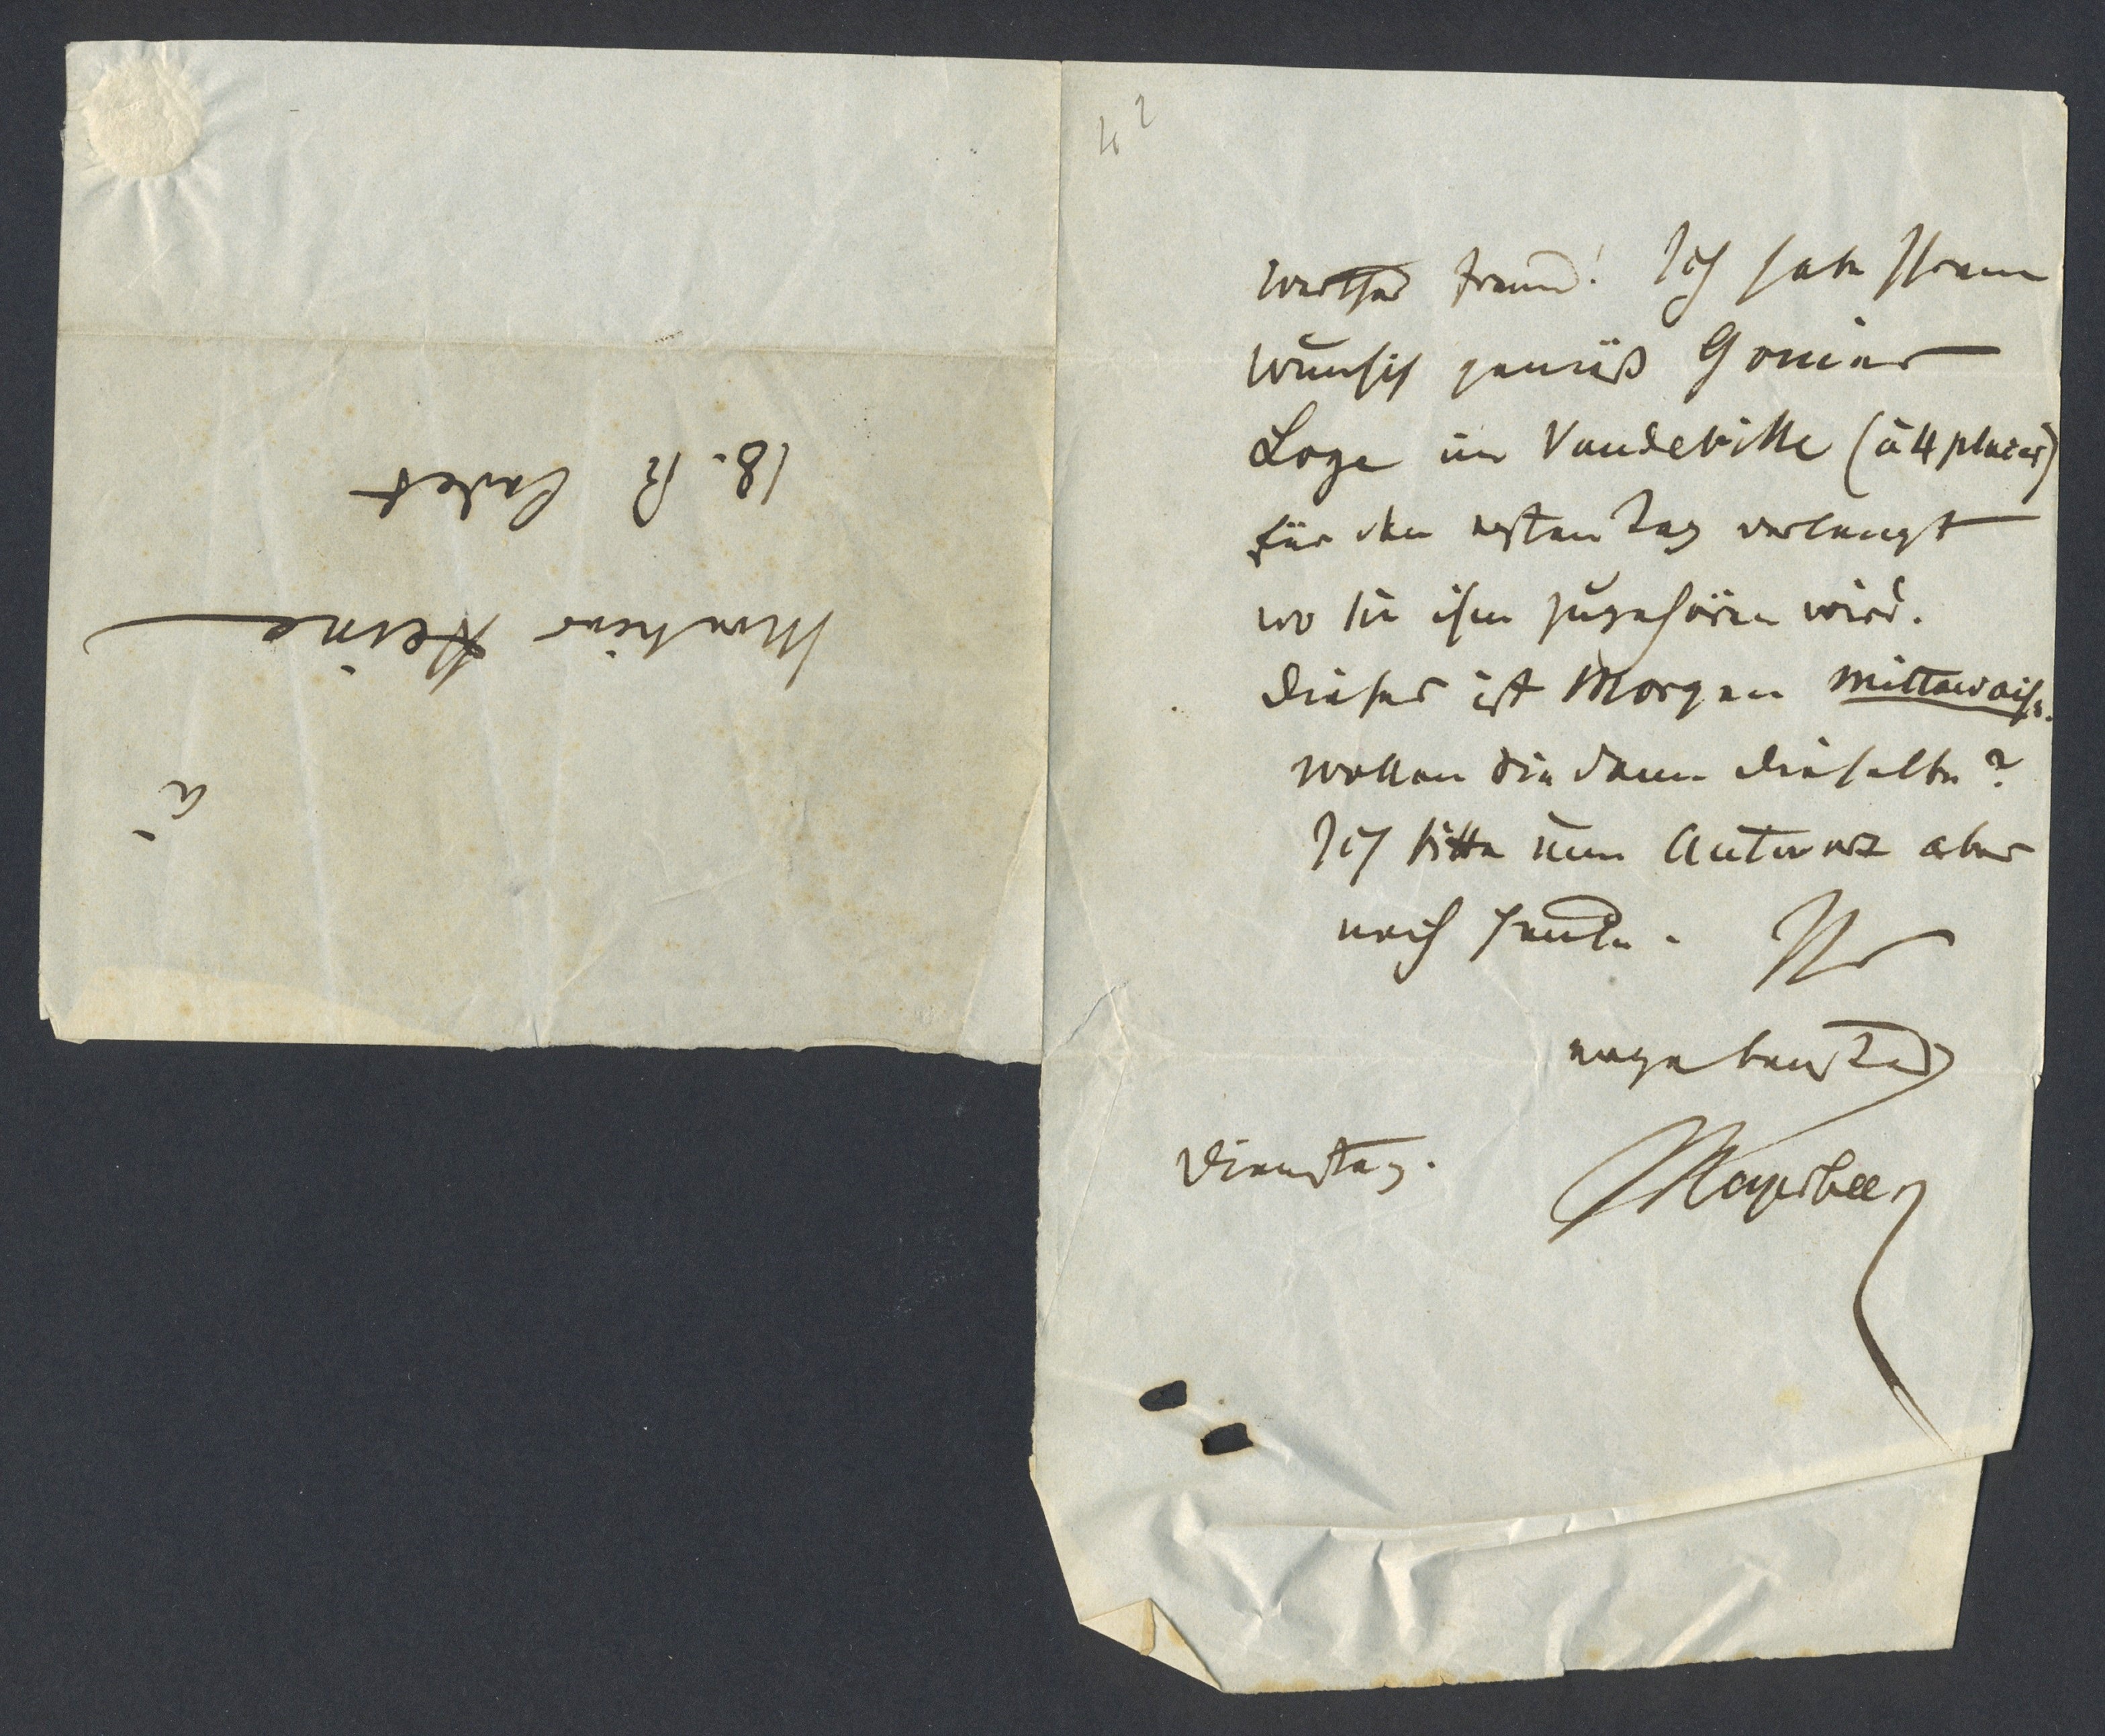 Werther Freund! Ich habe Ihrem
Wunsch gemäß Gouins
Loge im Vaudeville (à 4 places)
für den ersten Tag verlangt
wo sie ihm zugehören wird.
Dieser ist Morgen Mittewoch.
Wollen Sie dann dieselbe?
Ich bitte um Antwort aber
noch heute. Ihr
ergebenster
Dienstag. Meyerbeer
à
Monsieur Heine
18. R Cadet